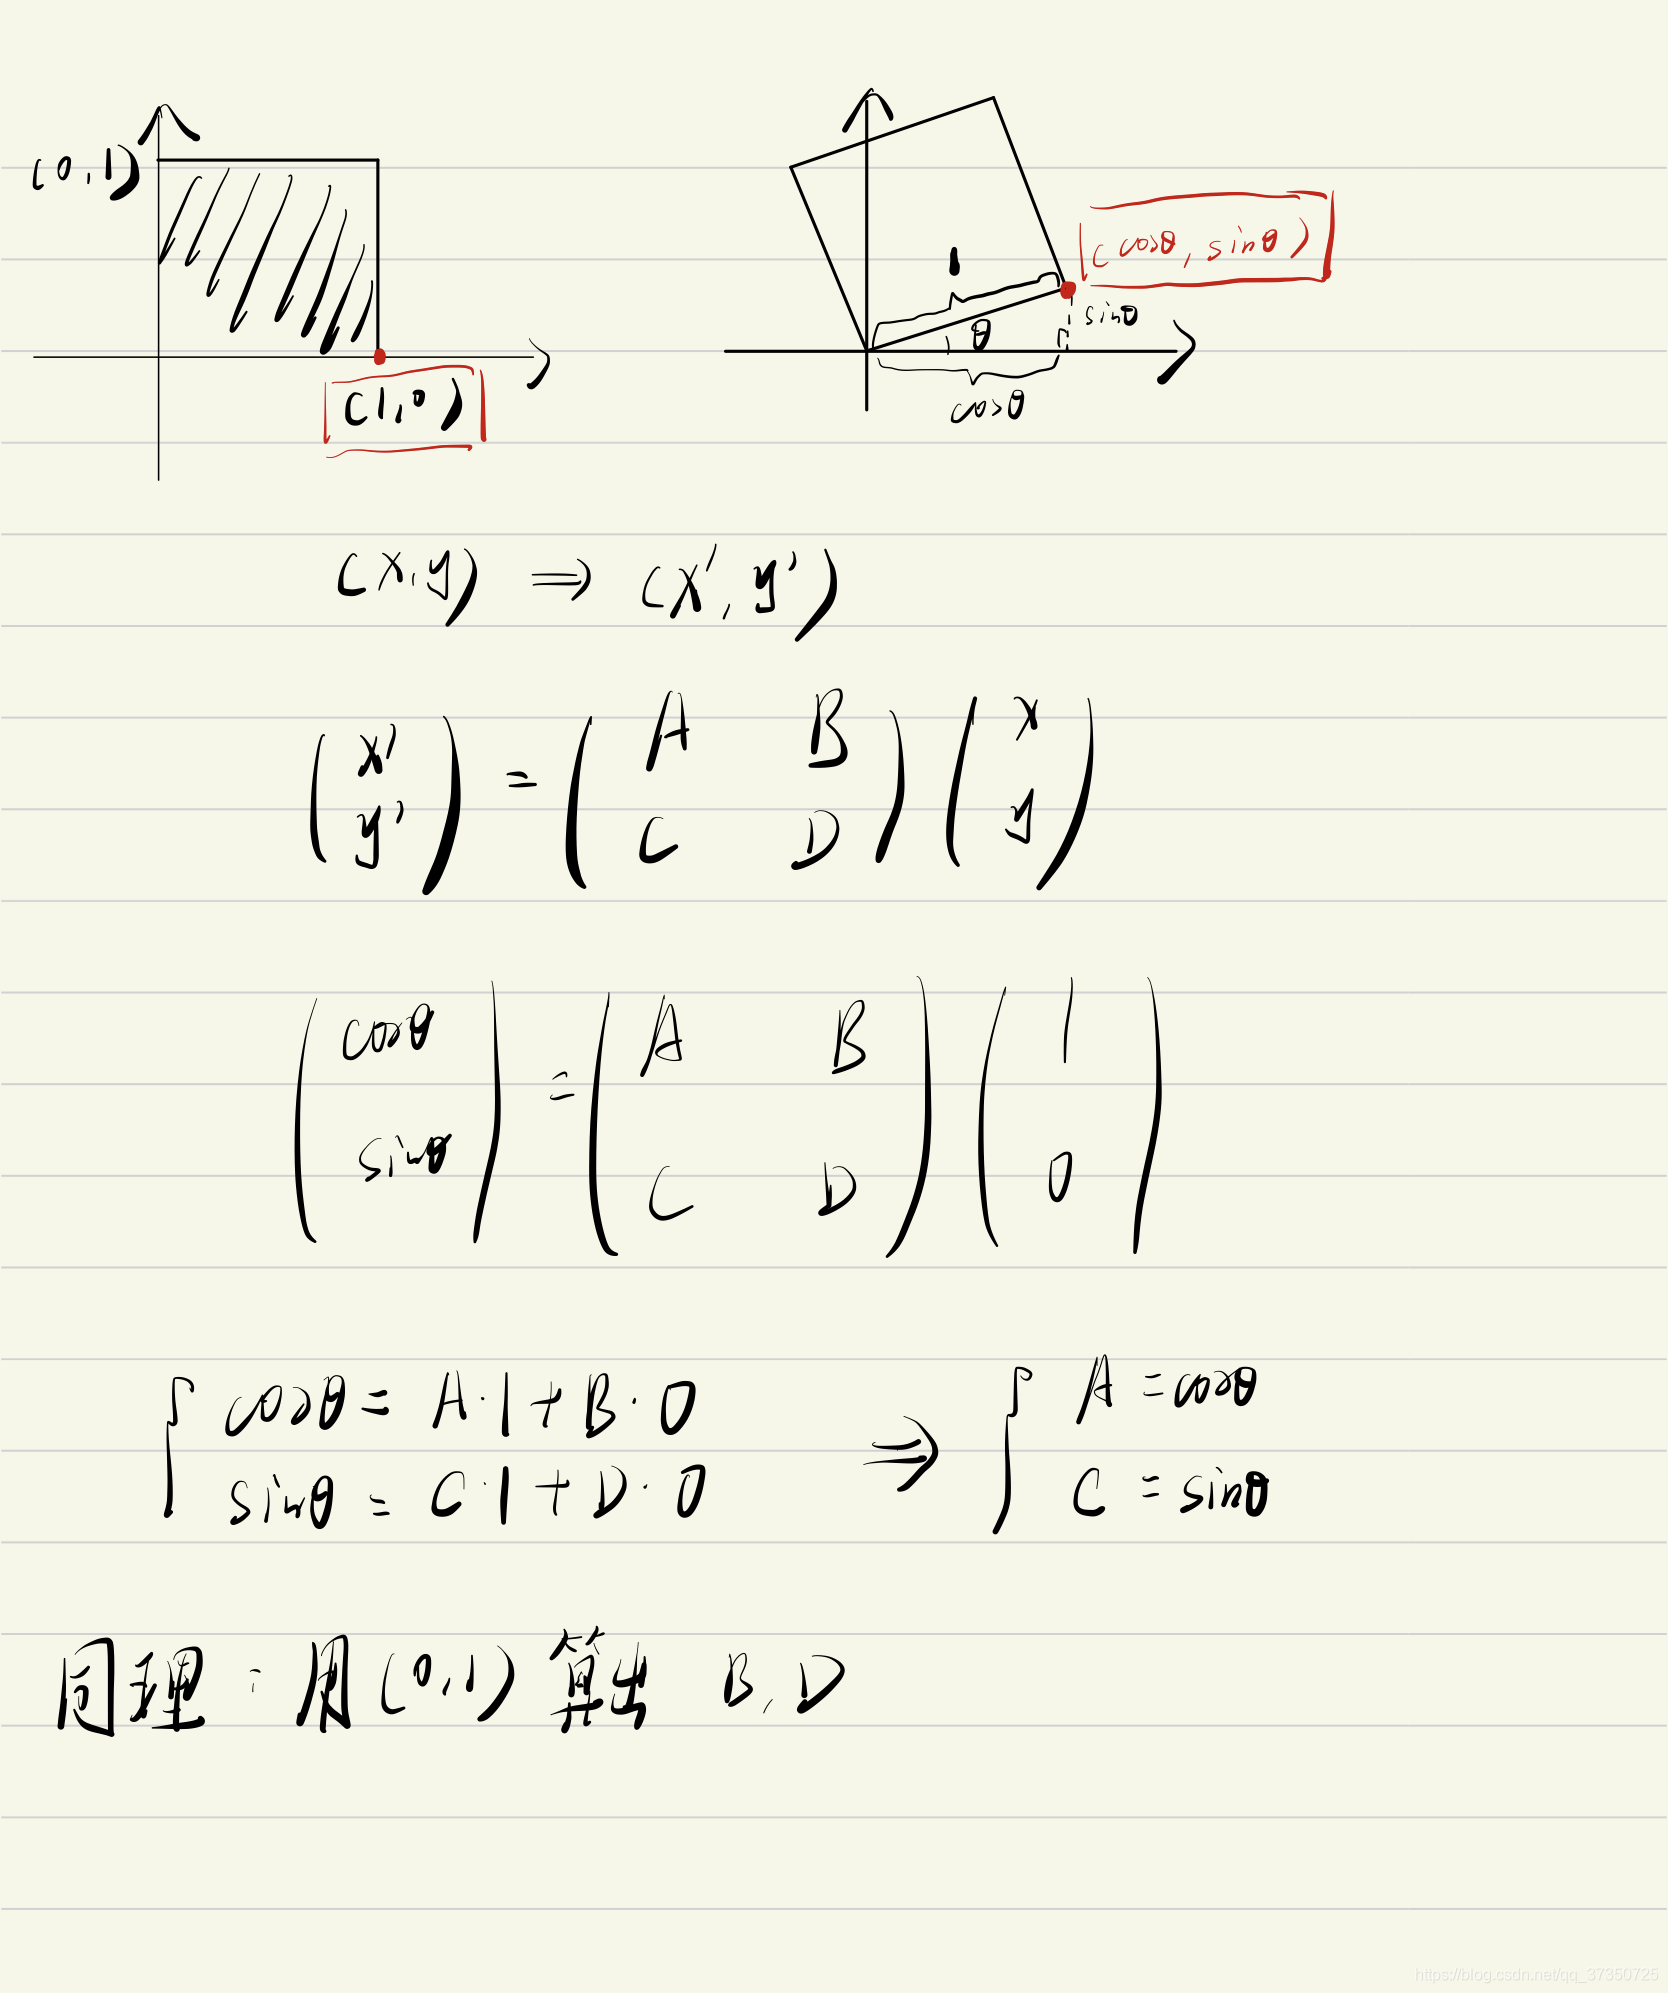 (0,1)
(1,0)
1
(cosθ, sinθ)
sinθ
θ
cosθ
(x,y) ⇒ (x', y')
(x' y') = (A B C D) (x y)
(cosθ sinθ) = (A B C D) (1 0)
{ cosθ = A·1 + B·0
sinθ = C·1 + D·0
⇒ { A = cosθ
C = sinθ
同理：用(0,1)算出 B,D
https://blog.csdn.net/qq_37350725